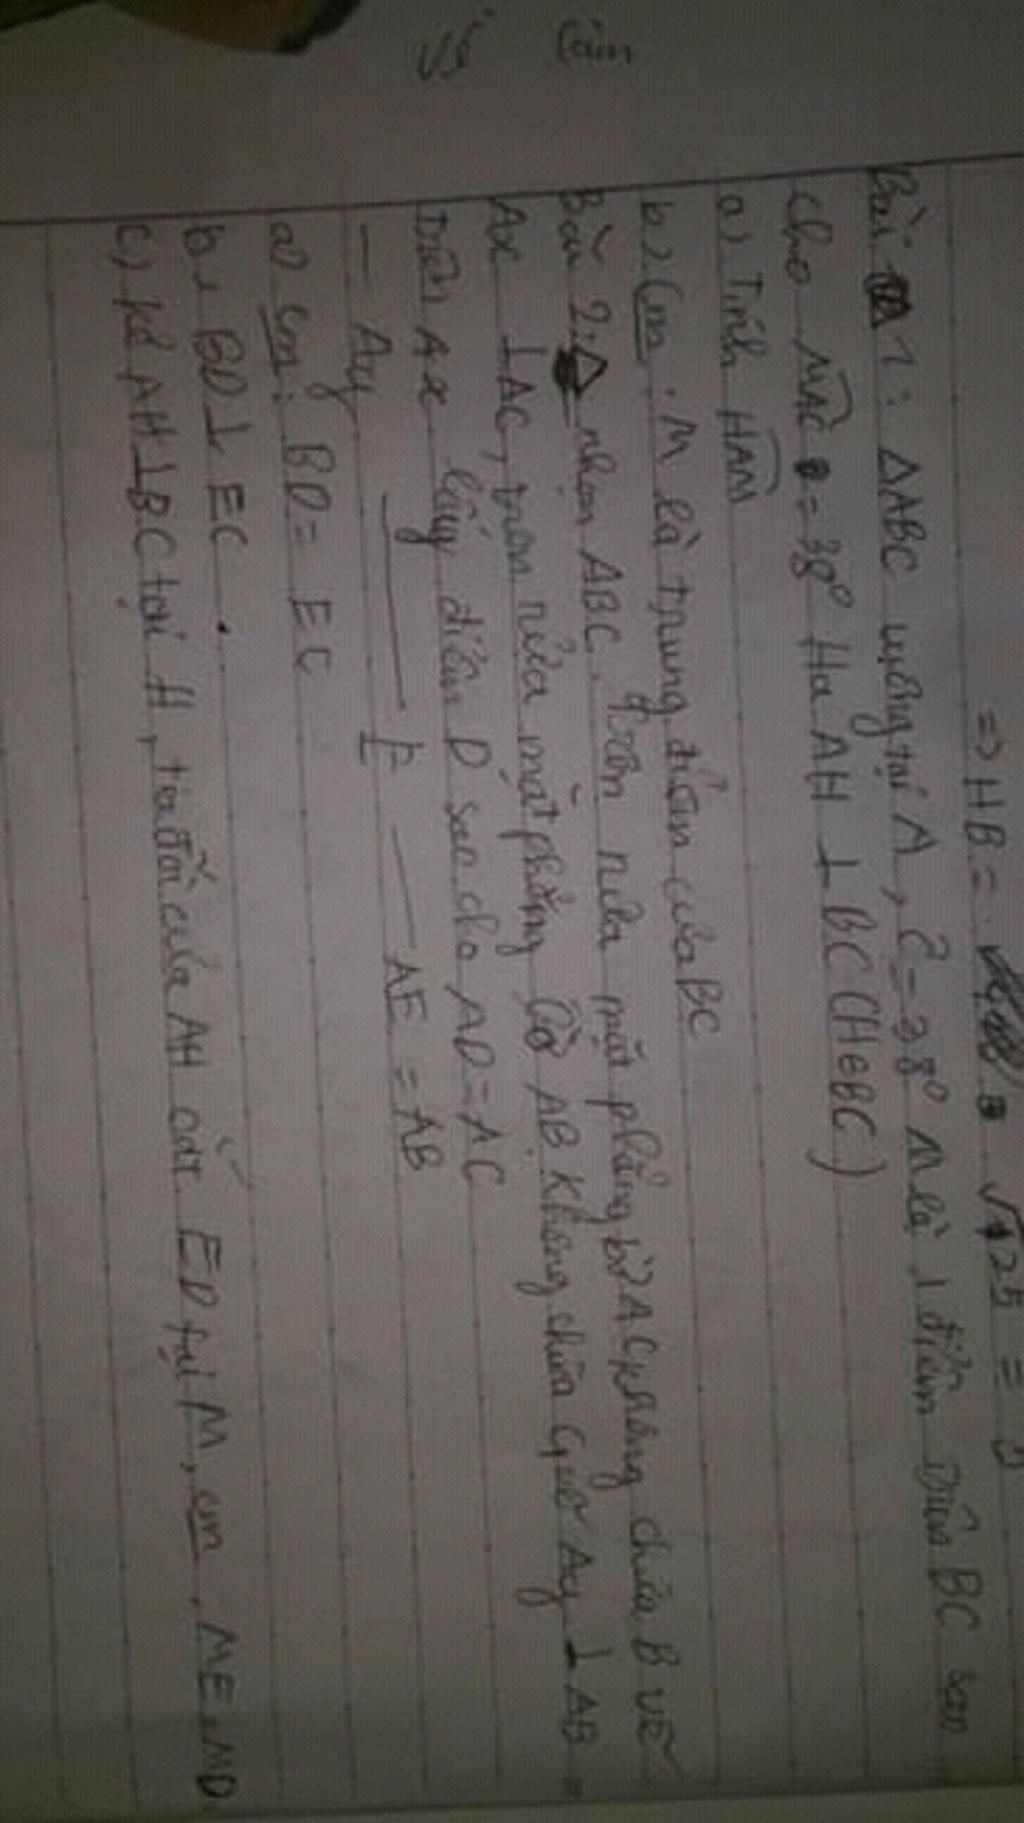 => HB = √125 =
Bài 1 : ΔABC vuông tại A, Ĉ = 38° M là 1 điểm trên BC sao
cho MAC = 38° Hạ AH ⊥ BC (H∈BC)
a) Tính HAM
b) Cm : M là trung điểm của BC
Bài 2: Δ nhọn ABC. Trên nửa mặt phẳng bờ AC không chứa B vẽ
Ax ⊥ AC, trên nửa mặt phẳng bờ AB không chứa C vẽ Ay ⊥ AB
Trên Ax lấy điểm D sao cho AD = AC
— Ay — E — AE = AB
a) Cm : BD = EC
b, BD ⊥ EC .
c) kẻ AH ⊥ BC tại H, tia đối của AH cắt ED tại M, cm. ME = MD